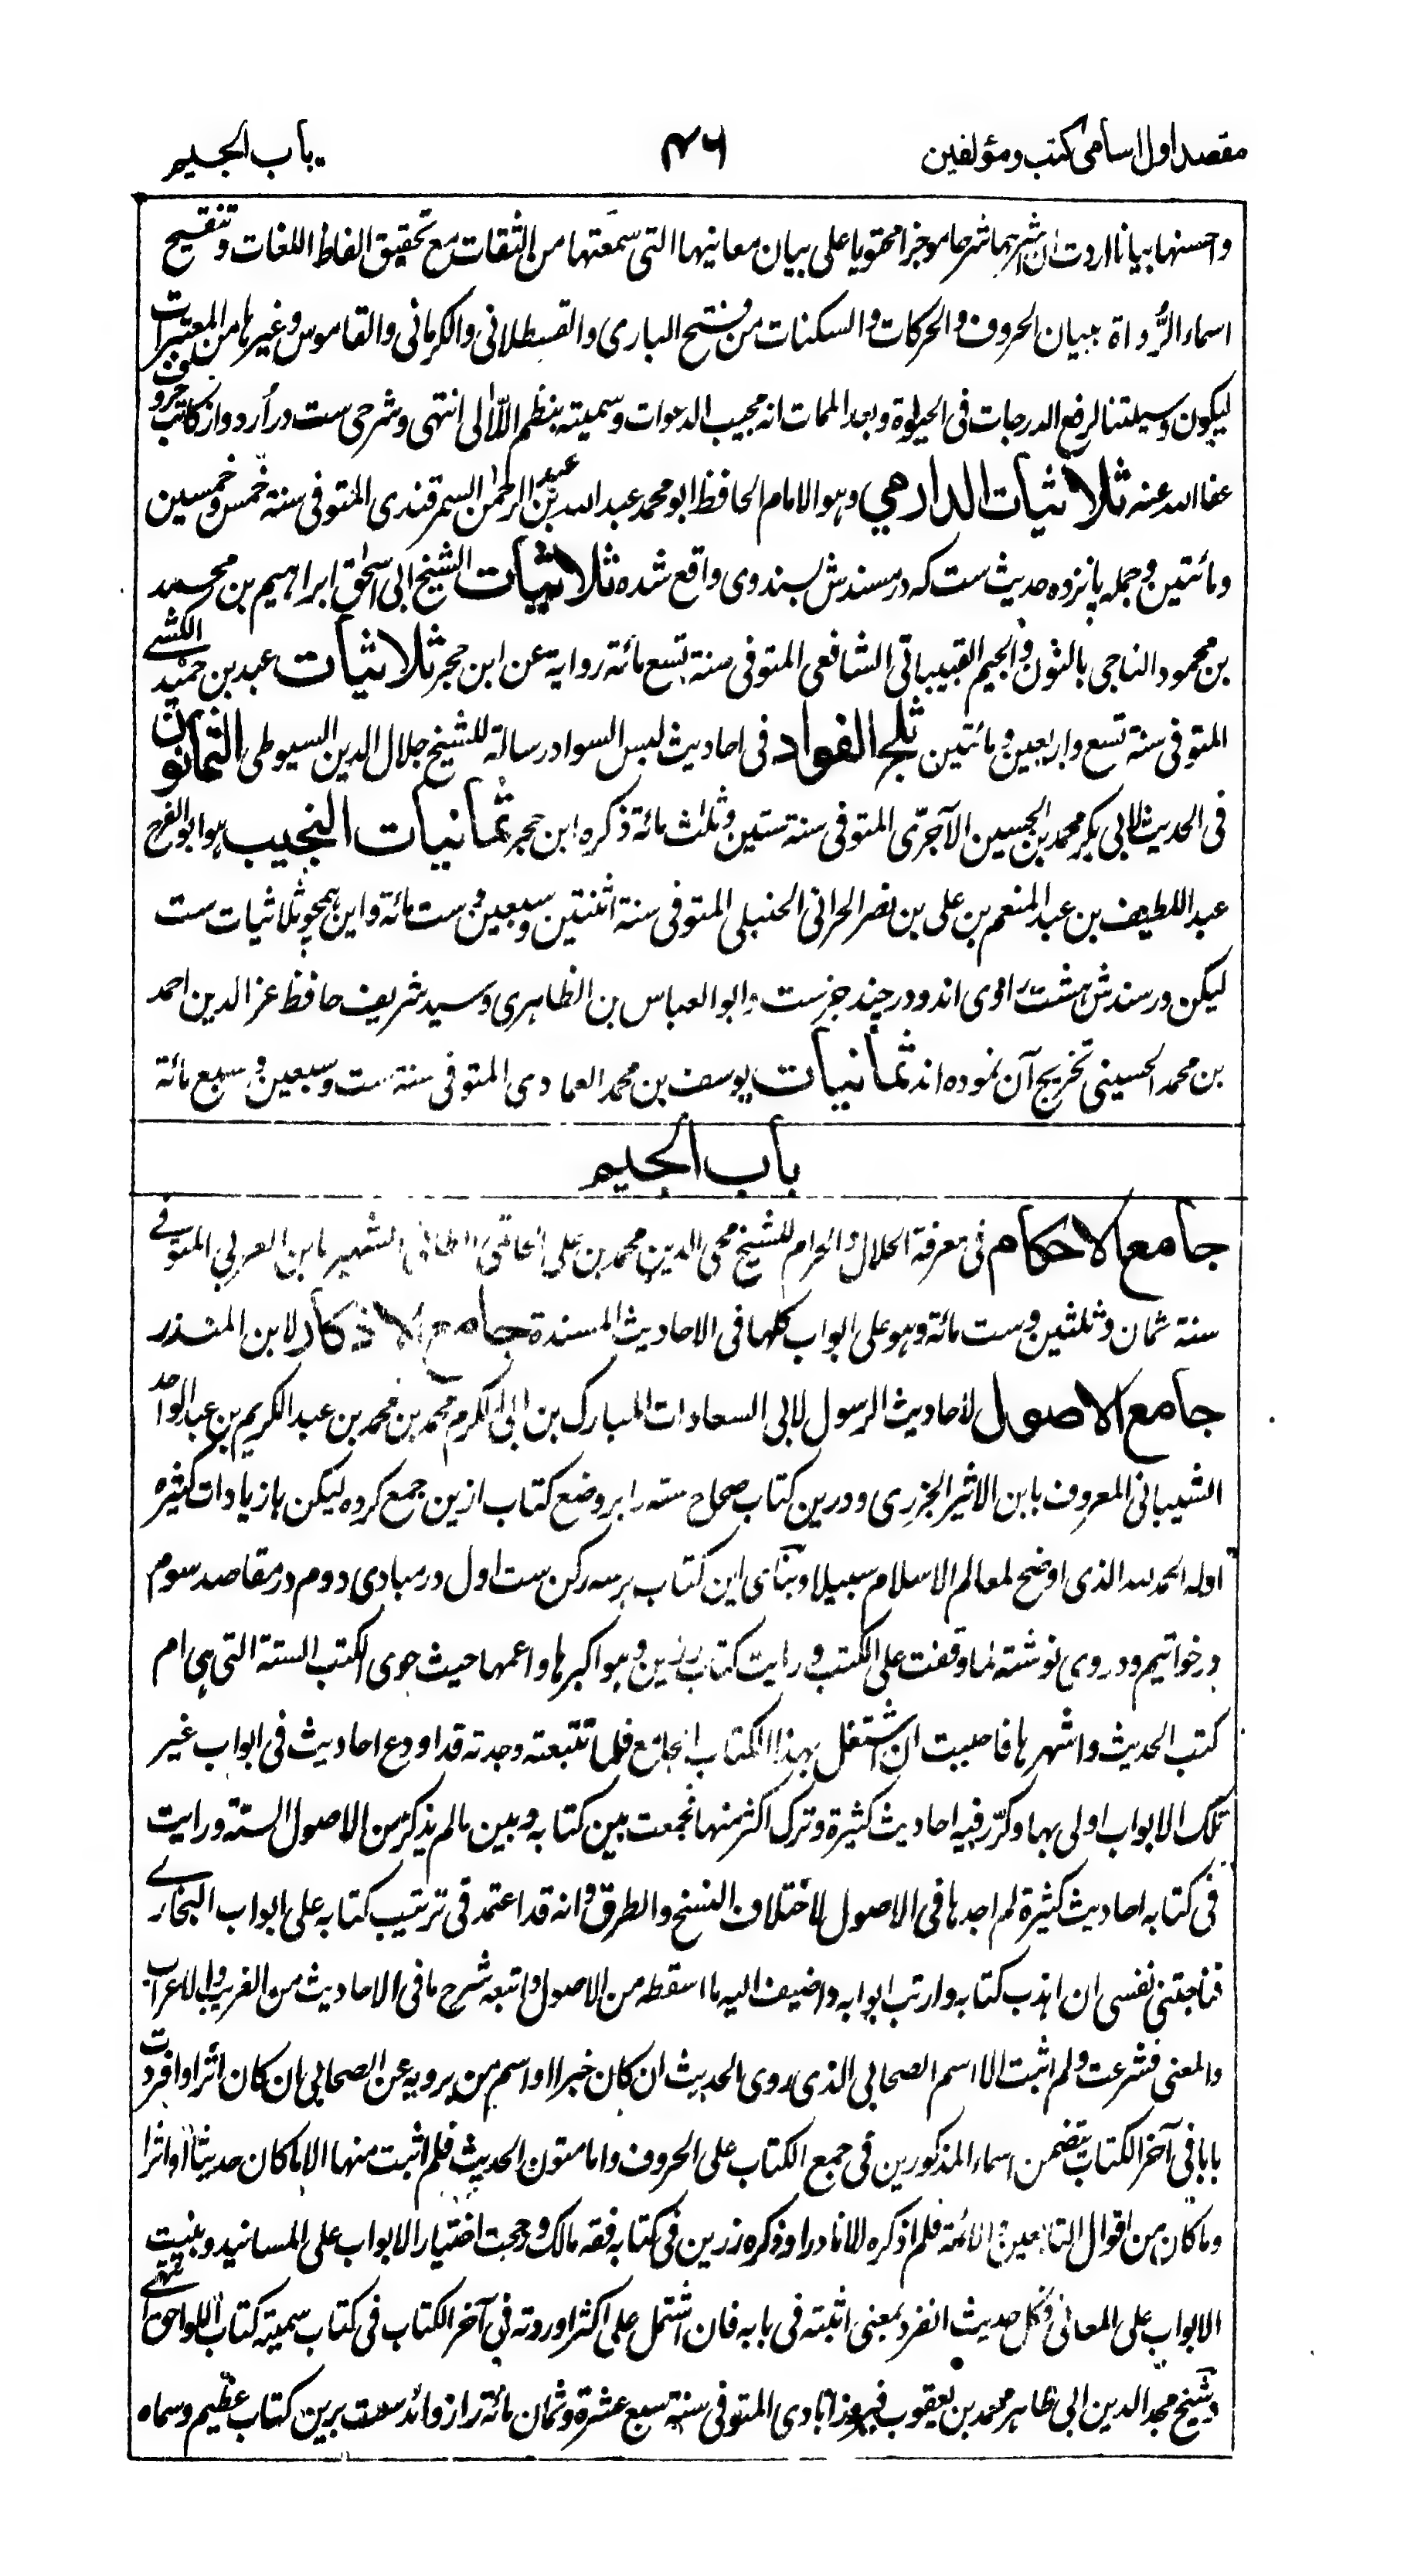 مقصد اول اسامی کتب و مؤلفین
۴۶
باب الجیم
واحسنها بیانا اردت ان اشرحها شرحا موجزا محتویا علی بیان معانیها التی سمعتها من الثقات مع تحقیق الفاظ اللغات و تنقیح
اسماء الرُّواة ببیان الحروف والحرکات والسکنات من فتح الباری والقسطلانی والکرمانی والقاموس وغیرها من المعتبرات
لیکون وسیلتنا لرفع الدرجات فی الحیٰوة وبعد الممات انه مجیب الدعوات وسمیته بنظم اللآلی انتهی وشرحی ست در اُردو از کاتب حروف
عفا الله عنه ثلاثیات الدارمي وهو الامام الحافظ ابو محمد عبد الله بن عبد الرحمٰن السمرقندی المتوفی سنة خمس وخمسین
ومائتین وجمله پانزده حدیث ست که در مسندش بسند وی واقع شده ثلاثیات الشیخ ابی اسحٰق ابراهیم بن محمد
بن محمود الناجی بالنون والجیم القبیباتی الشافعی المتوفی سنة تسع مائة روایة عن ابن حجر ثلاثیات عبد بن حمید الکشی
المتوفی سنة تسع واربعین ومائتین ثلج الفواد فی احادیث لبس السواد رسالة للشیخ جلال الدین السیوطی الثمانون
فی الحدیث لابی بکر محمد بن الحسین الآجرّی المتوفی سنة ستین وثلث مائة ذکره ابن حجر ثمانیات النجیب هو ابو الفرج
عبد اللطیف بن عبد المنعم بن علی بن نصر الحرانی الحنبلی المتوفی سنة اثنتین وسبعین وست مائة واین همچو ثلاثیات ست
لیکن در سندش هشت راوی اند ودر چند جزست وابو العباس بن الظاهری وسید شریف حافظ عز الدین احمد
بن محمد الحسینی تخریج آن نموده اند ثمانیات یوسف بن محمد العمادی المتوفی سنة ست وسبعین وسبع مائة
باب الجیم
جامع الاحکام فی معرفة الحلال والحرام للشیخ محی الدین محمد بن علی الشهیر بابن العربی المتوفی
سنة ثمان وثلثین وست مائة وهو علی ابواب کلها فی الاحادیث المسندة جامع الاذکار لابن المنذر
جامع الاصول لاحادیث الرسول لابی السعادات المبارک بن ابی الکرم محمد بن محمد بن عبد الکریم بن عبد الواحد
الشیبانی المعروف بابن الاثیر الجزری ودرین کتاب صحاح سته را بروضع کتاب ازین جمع کرده لیکن بازیادات کثیره
اوله الحمد لله الذی اوضح لمعالم الاسلام سبیلا وبنای این کتاب بر سه رکن ست اول در مبادی دوم در مقاصد سوم
در خواتیم ودر وی نوشته لما وقفت علی الکتب ورایت کتاب رزین وهو اکبرها واعمها حیث حوی الکتب الستة التی هی ام
کتب الحدیث واشهرها فاحببت ان اشتغل بهذا الکتاب الجامع فلما تتبعته وجدته قد اودع احادیث فی ابواب غیر
تلک الابواب اولی بها وکرّر فیه احادیث کثیرة وترک اکثر منها فجمعت بین کتابه وبین ما لم یذکر من الاصول الستة ورایت
فی کتابه احادیث کثیرة لم اجدها فی الاصول لاختلاف النسخ والطرق وانه قد اعتمد فی ترتیب کتابه علی ابواب البخاری
فناجتنی نفسی ان اهذب کتابه وارتب ابوابه واضیف الیه ما اسقطه من الاصول واتبعه شرح ما فی الاحادیث من الغریب والاعراب
والمعنی فشرعت ولم اثبت الا اسم الصحابی الذی روی الحدیث ان کان خبرا او اسم من یرویه عن الصحابی ان کان اثرا وافردت
بابا فی آخر الکتاب یتضمن اسماء المذکورین فی جمع الکتاب علی الحروف واما متون الحدیث فلم اثبت منها الا ما کان حدیثا او اثرا
وما کان من اقوال التابعین والائمة فلم اذکره الا نادرا وذکره رزین فی کتابه فقه مالک ورجحت اختیار الابواب علی المسانید وبنیت
الابواب علی المعانی فکل حدیث انفرد بمعنی اثبته فی بابه فان اشتمل علی اکثر اوردته فی آخر الکتاب فی کتاب سمیته کتاب اللواحق انتهی
وشیخ مجد الدین ابی طاهر محمد بن یعقوب فیروزابادی المتوفی سنة سبع عشرة وثمان مائة را زوائد ست برین کتاب عظیم وسماه